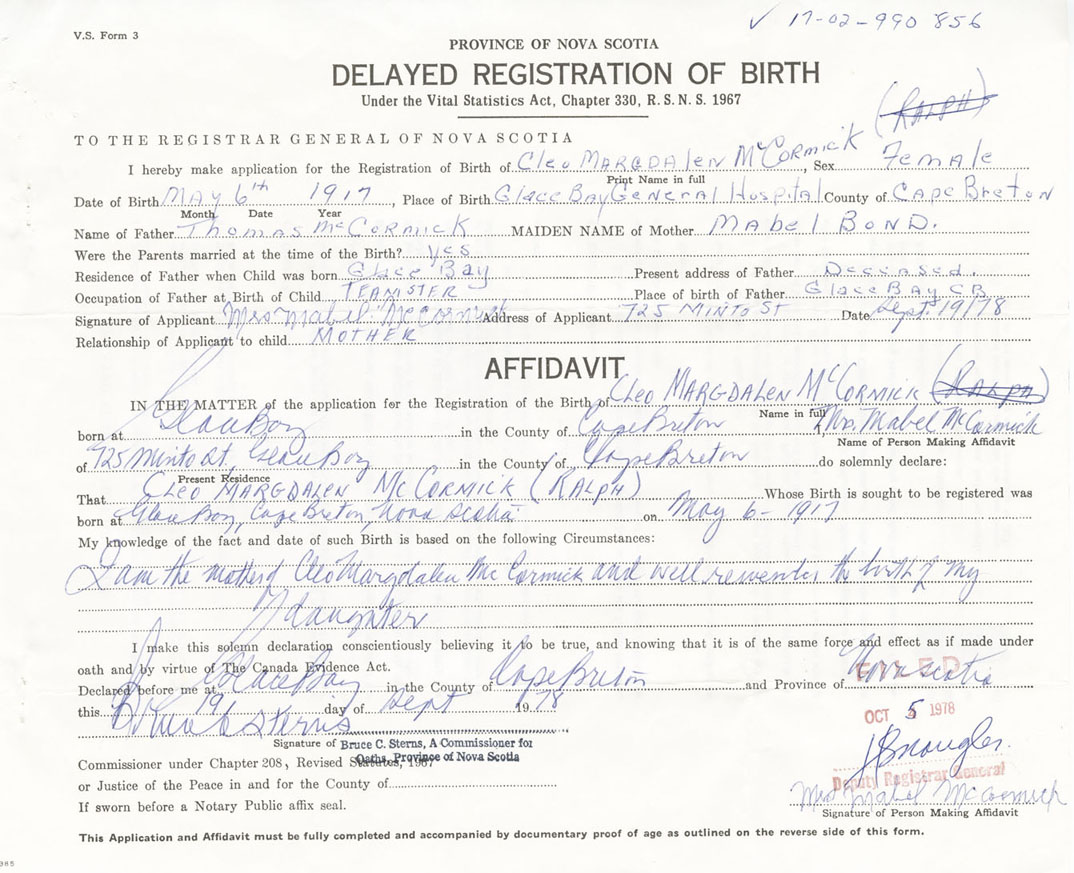 ✓ 17-02-990 856
V.S. Form 3
PROVINCE OF NOVA SCOTIA
DELAYED REGISTRATION OF BIRTH
Under the Vital Statistics Act, Chapter 330, R.S.N.S. 1967
(RALPH)
TO THE REGISTRAR GENERAL OF NOVA SCOTIA
I hereby make application for the Registration of Birth of Cleo MARGDALEN McCORMICK, Sex Female
Print Name in full
Date of Birth MAY 6th 1917, Place of Birth Glace Bay General Hospital County of Cape Breton
Month Date Year
Name of Father Thomas McCORMICK MAIDEN NAME of Mother Mabel BOND.
Were the Parents married at the time of the Birth? Yes
Residence of Father when Child was born Glace Bay Present address of Father Deceased.
Occupation of Father at Birth of Child TEAMSTER Place of birth of Father Glace BAY CB
Signature of Applicant Mrs Mabel McCormick Address of Applicant 725 MINTO ST Date Sept. 19/78
Relationship of Applicant to child MOTHER
AFFIDAVIT
IN THE MATTER of the application for the Registration of the Birth of Cleo MARGDALEN McCORMICK (RALPH)
Name in full
born at Glace Bay in the County of Cape Breton I, Mrs. Mabel McCormick
Name of Person Making Affidavit
of 725 Minto St, Glace Bay in the County of Cape Breton do solemnly declare:
Present Residence
That Cleo MARGDALEN McCORMICK (RALPH) Whose Birth is sought to be registered was
born at Glace Bay, Cape Breton, Nova Scotia on May 6 - 1917
My knowledge of the fact and date of such Birth is based on the following Circumstances:
I am the mother of Cleo Margdalen McCormick and well remember the birth of my
daughter
I make this solemn declaration conscientiously believing it to be true, and knowing that it is of the same force and effect as if made under
oath and by virtue of The Canada Evidence Act.
FILED
Declared before me at Glace Bay in the County of Cape Breton and Province of Nova Scotia
this 19 day of Sept 1978
OCT 5 1978
Bruce C Sterns
Signature of Bruce C. Sterns, A Commissioner for
Oaths, Province of Nova Scotia
Commissioner under Chapter 208, Revised Statutes, 1967
Deputy Registrar General
or Justice of the Peace in and for the County of
Mrs Mabel McCormick
If sworn before a Notary Public affix seal.
Signature of Person Making Affidavit
This Application and Affidavit must be fully completed and accompanied by documentary proof of age as outlined on the reverse side of this form.
965